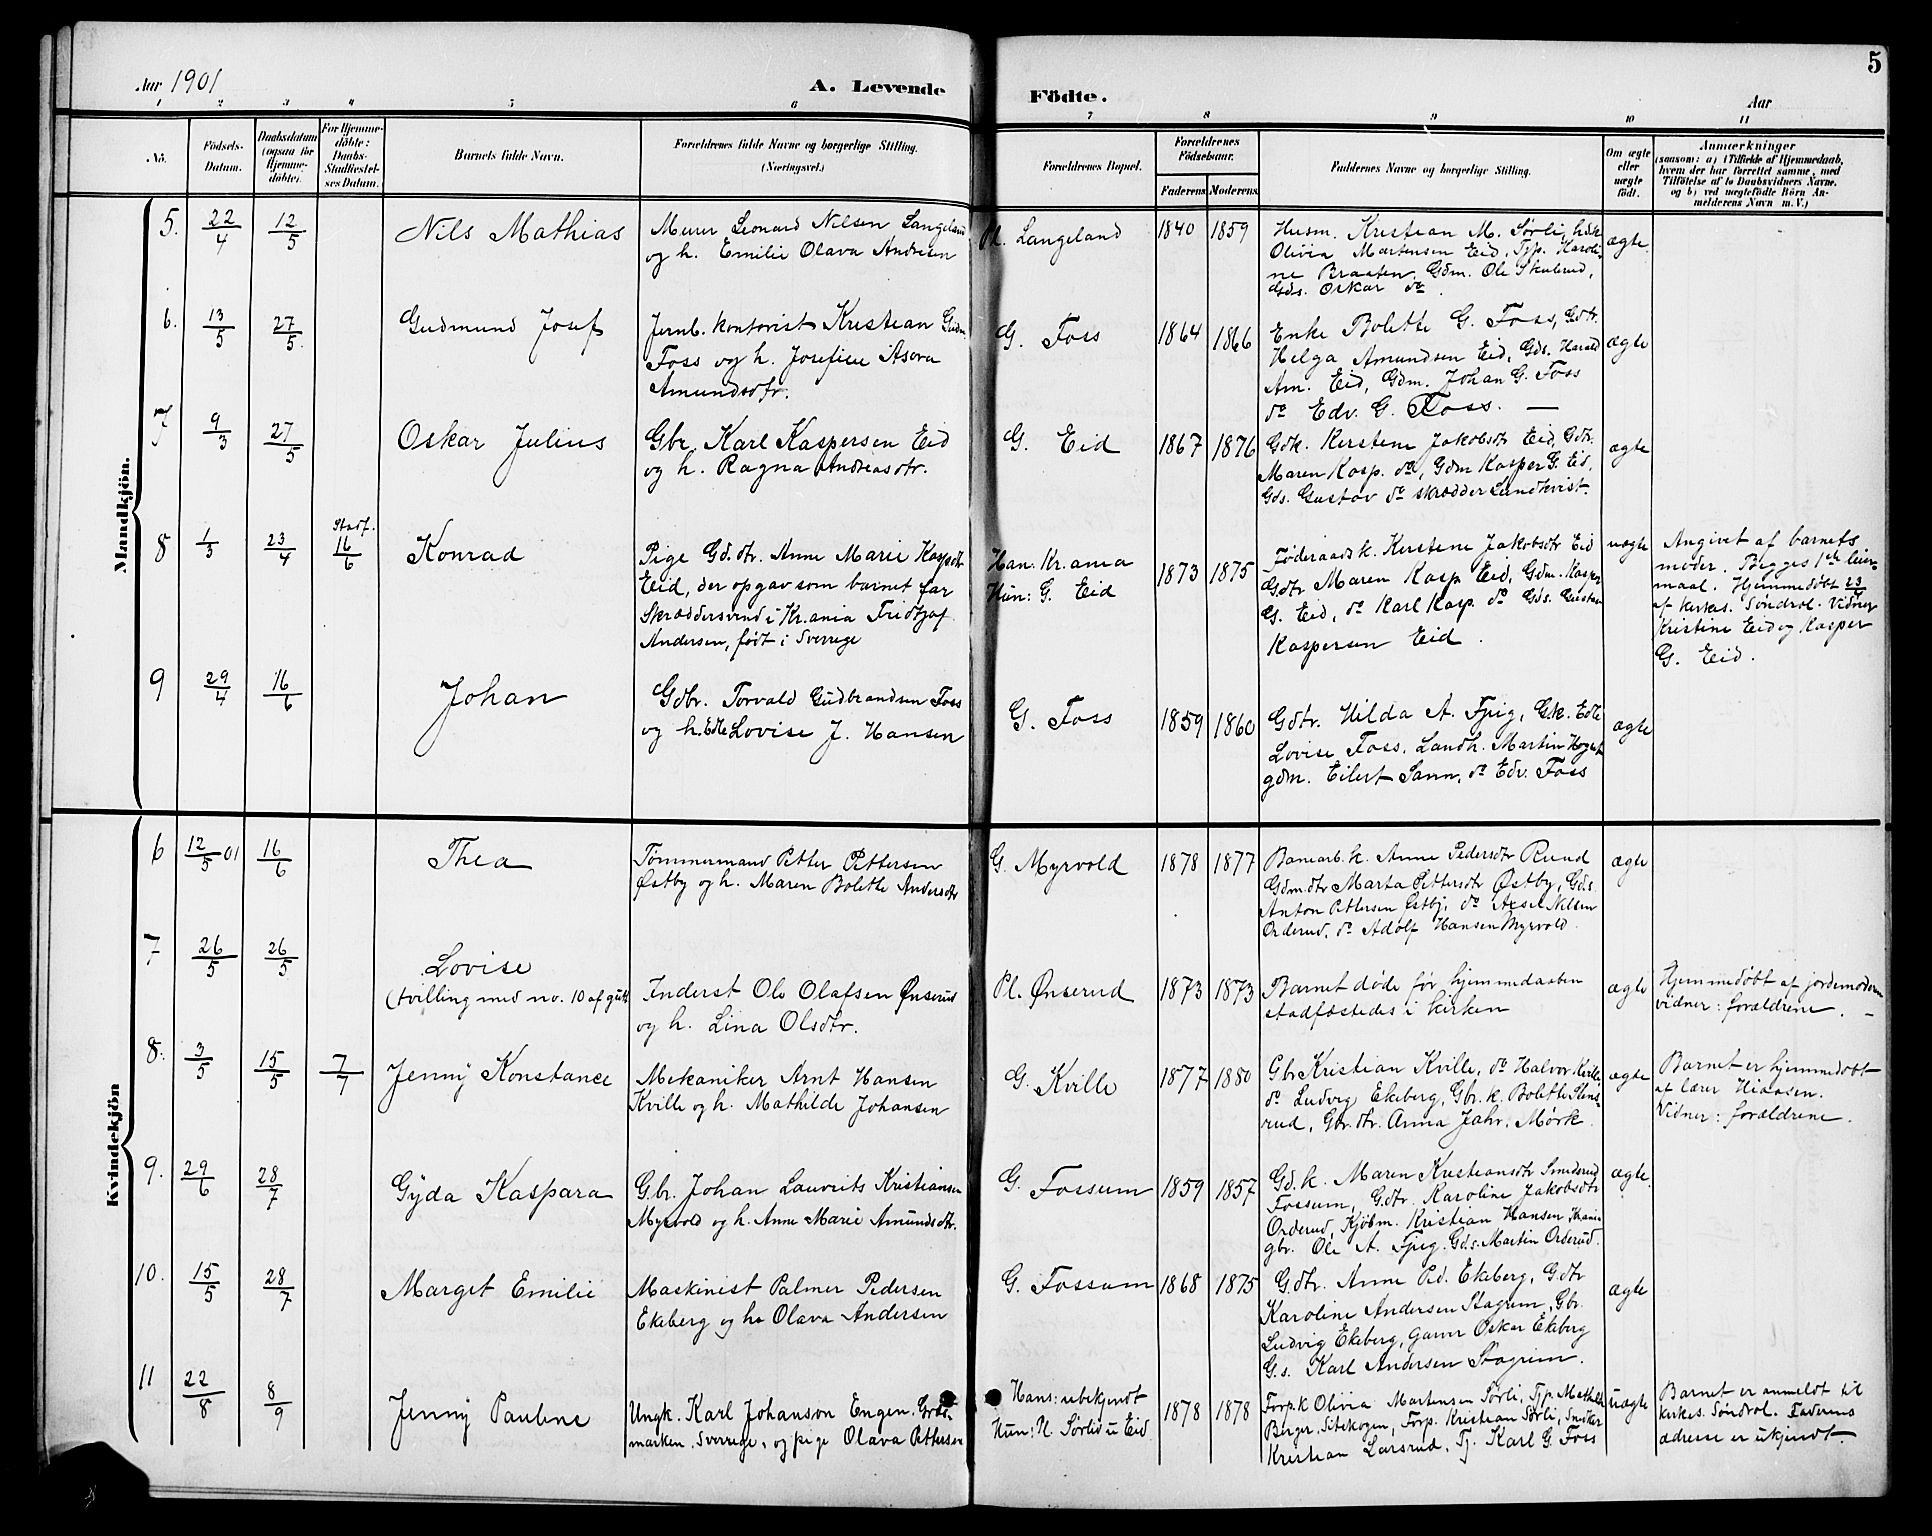 5
Aar 1901
A. Levende Födte.
Aar
1 2 3 4 5 6 7 8 9 10 11
No.
Födsels-Datum.
Daabsdatum (ogsaa for Hjemmedöbte).
For Hjemmedöbte: Daabs-Stadfæstelses Datum.
Barnets fulde Navn.
Forældrenes fulde Navne og borgerlige Stilling. (Næringsvei.)
Forældrenes Bopæl.
Forældrenes Födselsaar.
Faderens Moderens
Faddernes Navne og borgerlige Stilling.
Om ægte eller uægte födt.
Anmærkninger
(saasom: a) i Tilfælde af Hjemmedaab,
hvem der har forrettet samme, med
Tilföielse af to Daabsvidners Navne,
og b) ved uægtefödte Börn Anmelderens Navn m. V.)
Mandkjön.
5. 22/4 12/5 Nils Mathias
Murer Leonard Nilsen Langeland
og h. Emilie Olava Andersen
Pl. Langeland 1840 1859
Husm. Kristian M. Sørli,
Olivia Martensen Eid, Tjp. Karoli-
ne Braaten, Gdm. Ole Skulerud,
Gds. Oskar do.
ægte.
6. 13/5 27/5 Gudmund Josef
Jernb. kontorist Kristian Gudm.
Foss og h. Josefine Asora
Amundsdtr.
G. Foss 1864 1866
Enke Bolette G. Foss, Gdtr.
Helga Amundsen Eid, Gds. Harald
Am. Eid, Gdm. Johan G. Foss
do Edv. G. Foss. —
ægte
7 9/3 27/5 Oskar Julius
Gbr. Karl Kaspersen Eid
og h. Ragna Andreasdtr.
G. Eid 1867 1876
Gdk. Kerstene Jakobsdtr Eid, Gdtr.
Maren Kasp. do, Gdm Kasper G. Eid,
Gds. Gustav do skrædder Lundkvist.
ægte
8 1/3 23/4 Stadf. 16/6 Konrad
Pige Gd.dtr. Anne Marie Kaspdtr
Eid, der opgav som barnet far
Skræddersvend i Kr.ania Fridtjof
Andersen, født i Sverrege
Han: Kr.ania
Hun: G. Eid
1873 1875
Føderaadsk. Kerstene Jakobsdtr Eid
Gdtr Maren Kasp Eid, Gdm. Kasper
G. Eid, do Karl Kasp. do Gds. Gustav
Kaspersen Eid.
uægte
Angivet af barnets
moder. Begges 1ste leier-
maal. Hjemmedøbt 23/4
af kirkes. Søndrol. Vidner
Kristine Eid og Kasper
G. Eid.
9 29/4 16/6 Johan
Gdbr. Torvald Gudbrandsen Foss
og h. Edle Lovise J. Hansen
G. Foss 1859 1860
Gdtr. Hilda A. Fjeig, Gk. Edle
Lovise Foss, Landh. Martin
gdm. Eilert Sann, do Edv. Foss
ægte
Kvindekjön
6 12/5 01 16/6 Thea
Tømmermand Petter Pettersen
Østby og h. Maren Bolette Andersdtr
G. Myrvold 1878 1877
Banearb.k. Anne Pedersdtr Rund
Gdm.dtr Marta Pettersdtr Østby, Gds.
Anton Pettersen Østby, do Axsel Nilsen
Orderud, do Adolf Hansen Myrvold.
ægte
7 26/5 26/5 Lovise
(tvilling med no. 10 af gutt.
Inderst Ole Olafsen Ønserud
og h. Lina Olsdtr.
Pl. Ønserud 1873 1873
Barnet døde før hjemmedaaben
stadfæstedes i kirken
ægte
Hjemmedøbt af jordemoderen
vidner: forældrene. —
8. 3/5 15/5 7/7 Jenny Konstance
Mekaniker Arnt Hansen
Kville og h. Mathilde Johansen
G. Kville 1877 1880
Gbr Kristian Kville, do Halvor Kville,
do Ludvig Ekeberg, Gbr.k. Bolette Stens-
rud, Gbr.dtr. Anna Jahr, Mørk.
ægte
Barnet er hjemmedøbt
af lærer Hiaasen.
Vidner: forældrene.
9. 29/6 28/7 Gyda Kaspara
G.br. Johan Lauvrits Kristiansen
Myrvold og h. Anne Marie Amundsdtr.
G. Fossum 1859 1857
Gd.k. Maren Kristiansdtr Smederud
Fossum, G.dtr. Karoline Jakobsdtr
Orderud, Kjøbm. Kristian Hansen Kr.ania
gbr. Ole A. Fjeig. Gd.s. Martin Orderud.
ægte.
10. 15/5 28/7 Marget Emilie
Maskinist Palmer Pedersen
Ekeberg og ho Olava Andersen
G. Fossum 1868 1875
G.dtr. Anne Ped. Ekeberg, G.dtr
Karoline Andersen Stagrim, Gbr.
Ludvig Ekeberg, Garver Oskar Ekeberg
G.s. Karl Andersen Stagrim.
ægte
11 22/8 8/9 Jenny Pauline
Ungk. Karl Johanson Engen,
marken, Sverrege, og pige Olava Pettersen
Hans: ubekjendt
Hun: H. Sørlid u Eid.
1878 1878
Forp.k Olivia Martensen Sørli, Tjp. Mathilde
Berger, Sitskogen, Forp. Kristian Sørli, Snedker
Kristian Larsrud, Tj. Karl G. Foss
uægte
Barnet er anmeldt til
kirkes. Søndrol. Faderens
adresse er ukjendt.